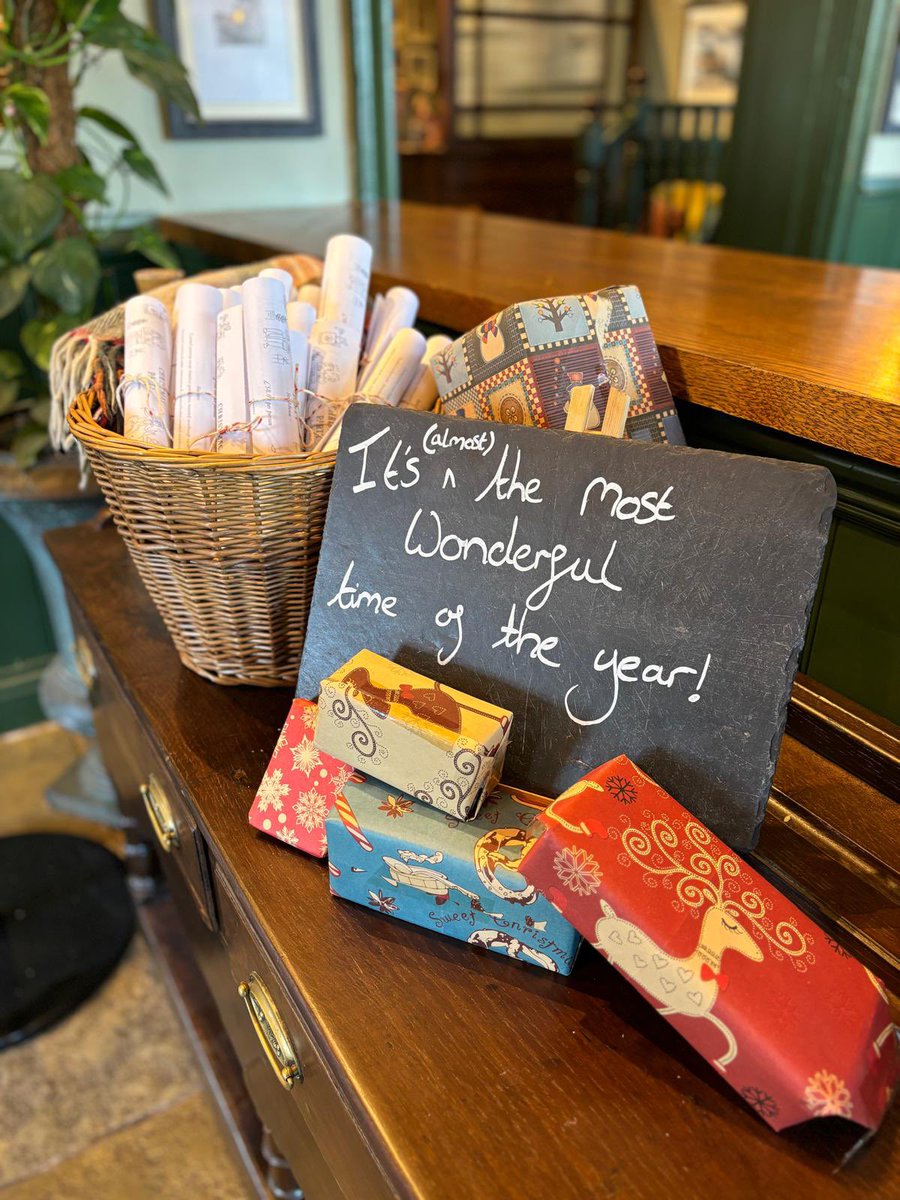 (almost)
It's ^ the most
Wonderful
time of the year!
Sweet Christmas